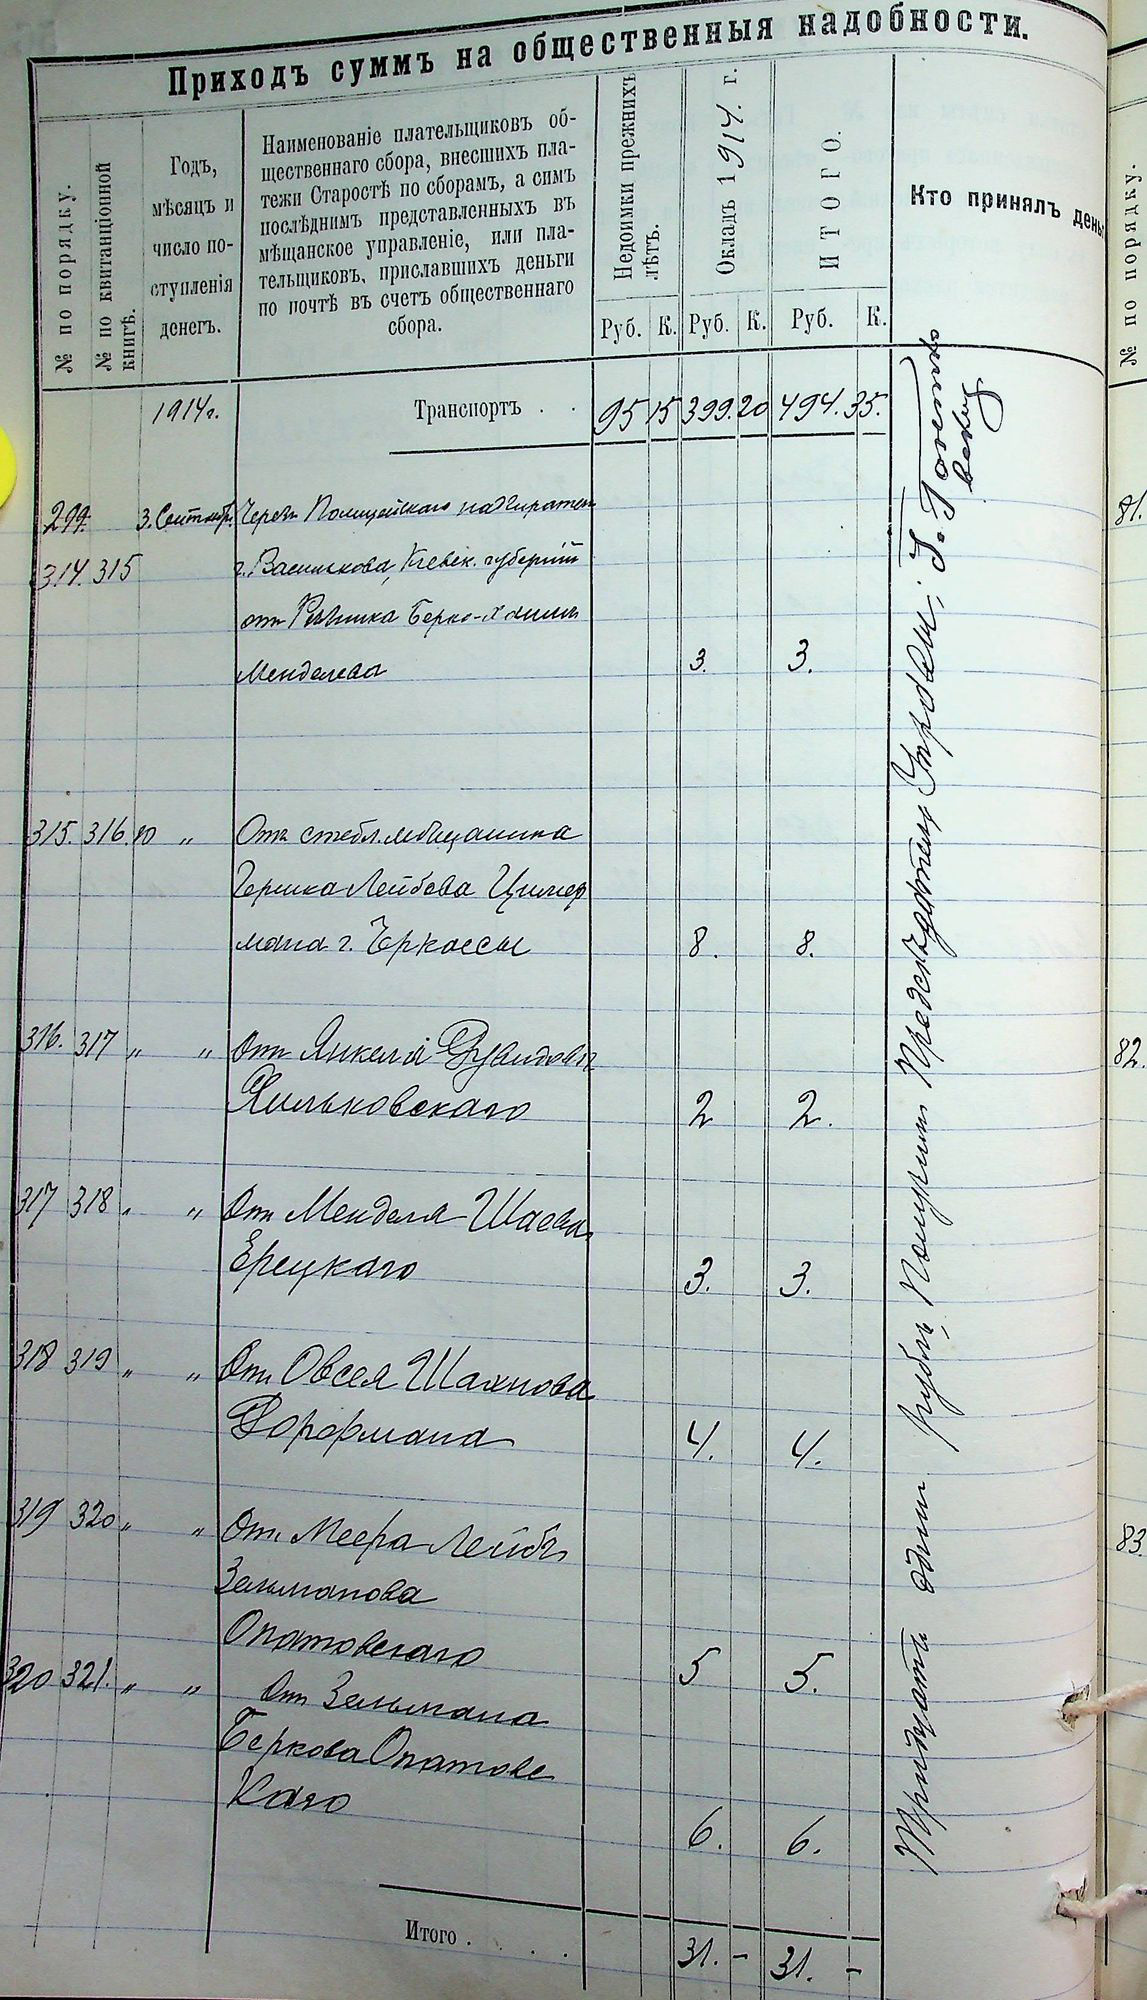 Приходъ суммъ на общественныя надобности.
№ по порядку.
№ по квитанціонной книгѣ.
Годъ,
мѣсяцъ и
число по-
ступленія
денегъ.
Наименованіе плательщиковъ об-
щественнаго сбора, внесшихъ пла-
тежи Старостѣ по сборамъ, а симъ
послѣднимъ представленныхъ въ
мѣщанское управленіе, или пла-
тельщиковъ, приславшихъ деньги
по почтѣ въ счетъ общественнаго
сбора.
Недоимки прежнихъ лѣтъ.
Окладъ 1914. г.
ИТОГО.
Кто принялъ день
Руб. К. Руб. К. Руб. К.
1914 г. Транспортъ . . 95 15 399. 20 494. 35.
299. 3. Сентябр. Черезъ Полицейскаго надзирателя
314. 315 г. Василькова, Кіевск. губерніи
отъ Рѣзника Берко-Хаима
Менделева 3. 3.
315. 316. 10 " Отъ стебл. мѣщанина
Гершка Лейбова Цимер
мана г. Черкассы 8. 8.
316. 317 " " Отъ Янкеля Дувидова
Хильковскаго 2 2.
317 318 " " Отъ Менделя Шаева
Ерецкаго 3. 3.
318 319 " " Отъ Овсея Шахнова
Форфмана 4. 4.
319 320 " " Отъ Меера Лейбъ
Зельманова
Опатовскаго 5 5.
320 321. " " Отъ Зельмана
Беркова Опатовс
каго 6. 6.
Итого . . . . 31. - 31. -
Тридцать одинъ рубль, Получилъ Предсѣдатель Управы,
№ по порядку.
81.
82.
83.